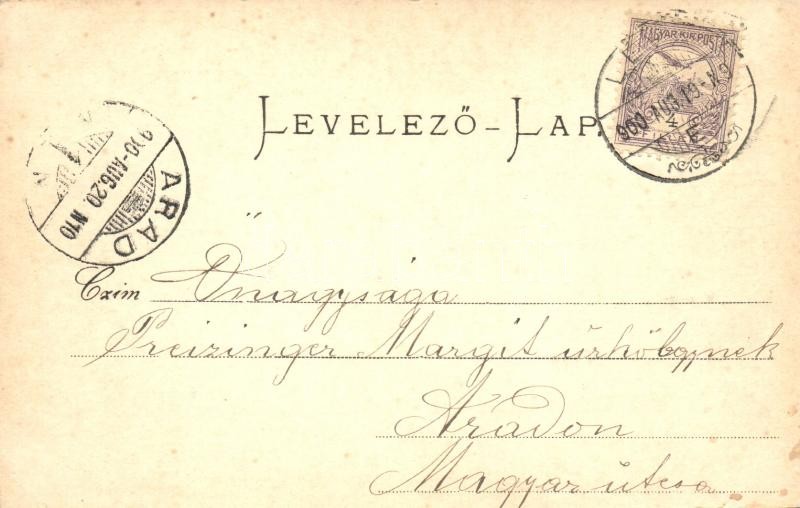 MAGYAR KIR. POSTA
900 AUG. 19
LEVELEZŐ-LAP.
ARAD
900-AUG. 20. N10
Czim Őnagysága
Preizinger Margit úrhölgynek
Aradon
Magyar útcsa